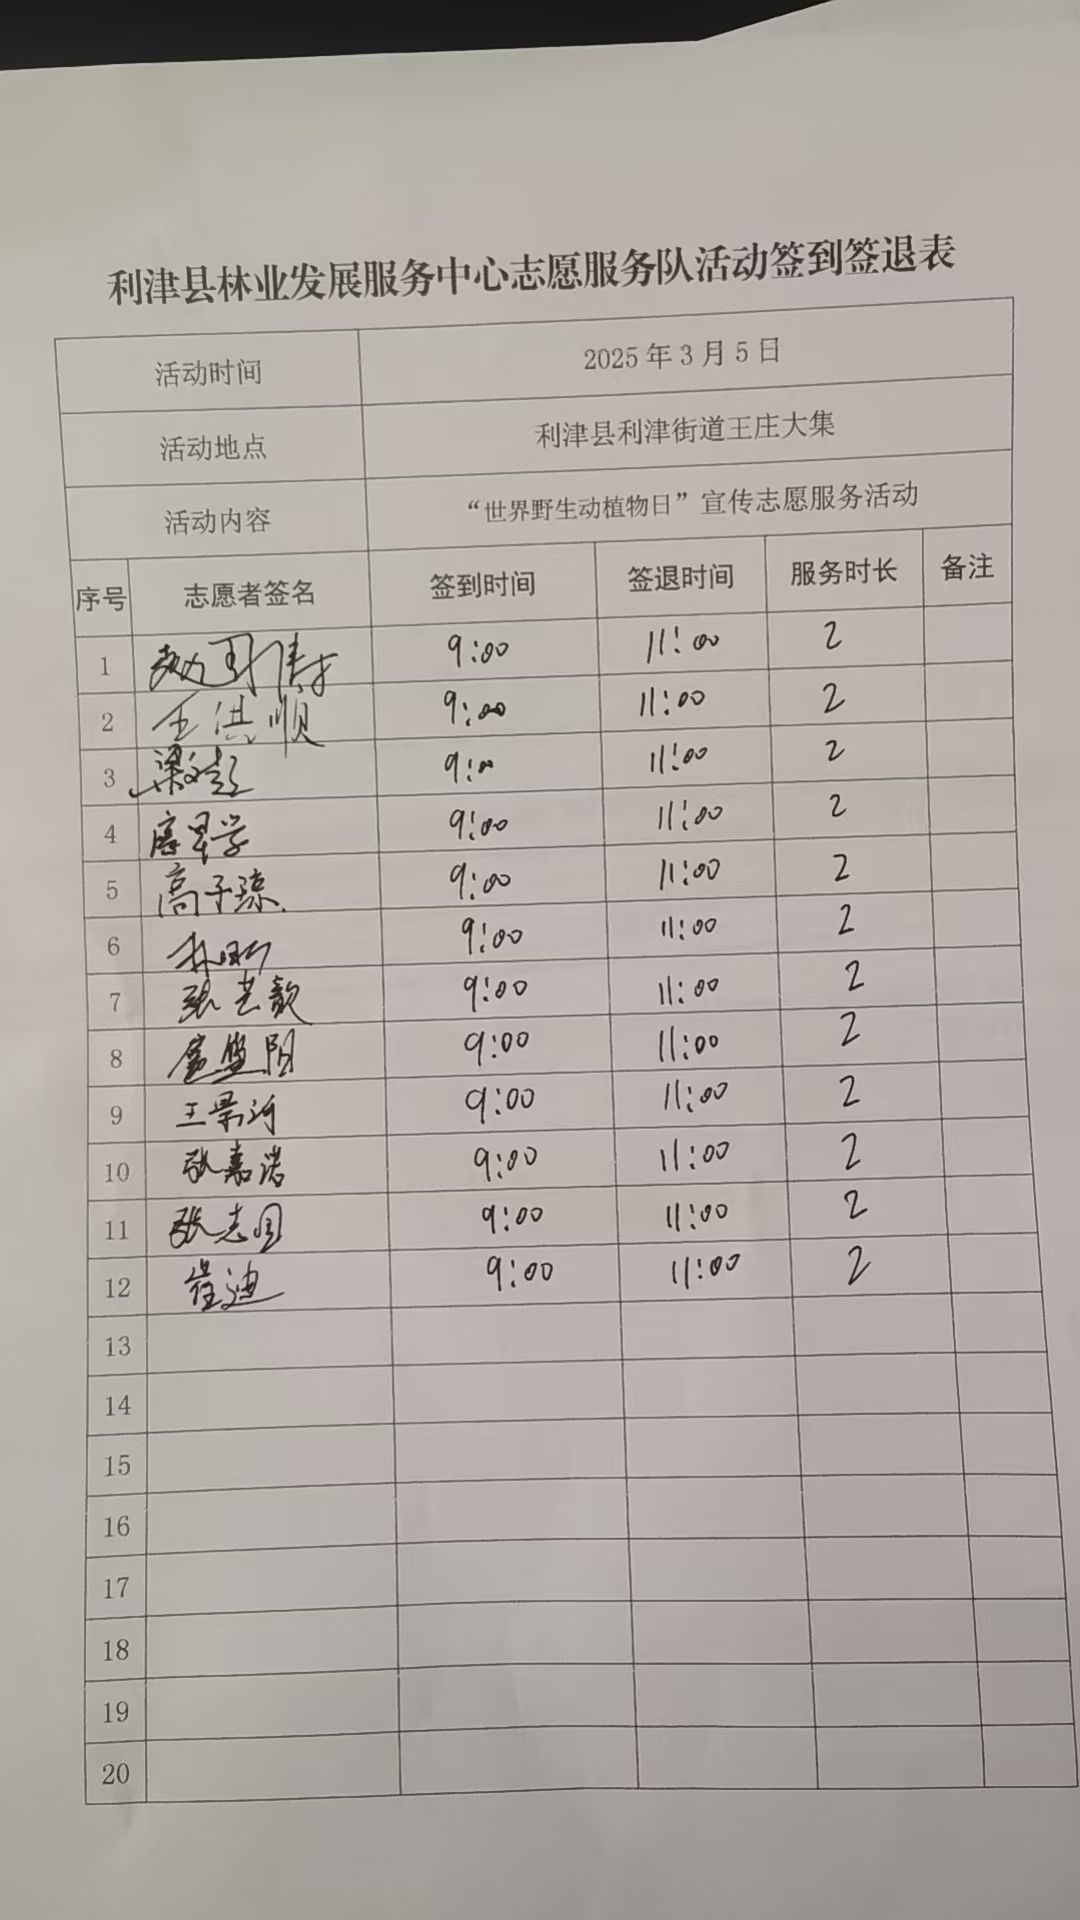 利津县林业发展服务中心志愿服务队活动签到签退表
活动时间 2025年3月5日
活动地点 利津县利津街道王庄大集
活动内容 “世界野生动植物日”宣传志愿服务活动
序号 志愿者签名 签到时间 签退时间 服务时长 备注
1 9:00 11:00 2
2 王洪顺 9:00 11:00 2
3 梁文彭 9:00 11:00 2
4 9:00 11:00 2
5 高子琼 9:00 11:00 2
6 林昕 9:00 11:00 2
7 张艺歆 9:00 11:00 2
8 9:00 11:00 2
9 王景河 9:00 11:00 2
10 张嘉诺 9:00 11:00 2
11 张志国 9:00 11:00 2
12 崔迪 9:00 11:00 2
13
14
15
16
17
18
19
20